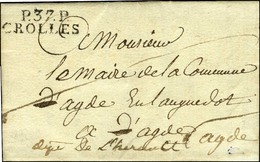 P.37.P.
CROLLES
Monsieur
le maire de la Commune
d'agde En languedoc
A d'agde
agde
dept de L'herault